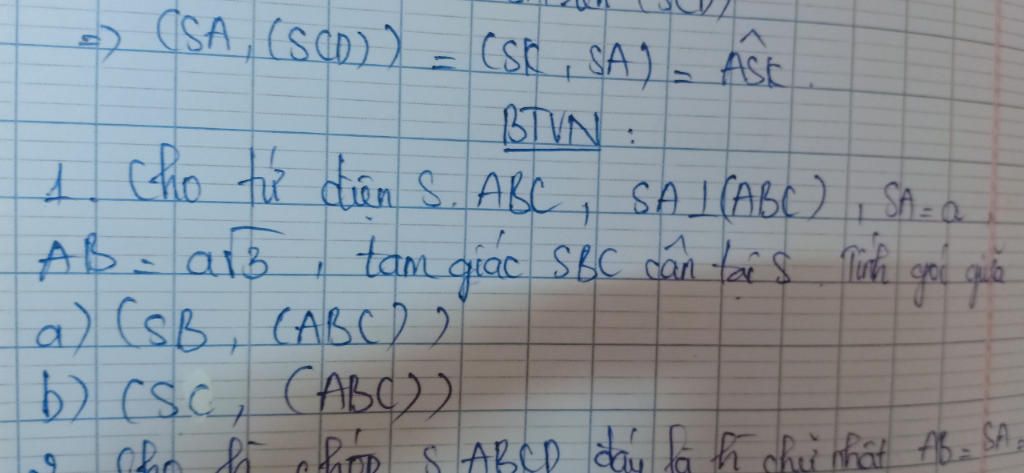 (SCD)
=> (SA, (SCD)) = (SK, SA) = ASK.
BTVN:
1. Cho tứ diện S.ABC, SA⊥(ABC), SA=a,
AB = a√3, tam giác SBC cân tại S. Tính góc giữa
a) (SB, (ABC))
b) (SC, (ABC))
Cho h chóp S ABCD đáy là h chữ nhật AB = SA =